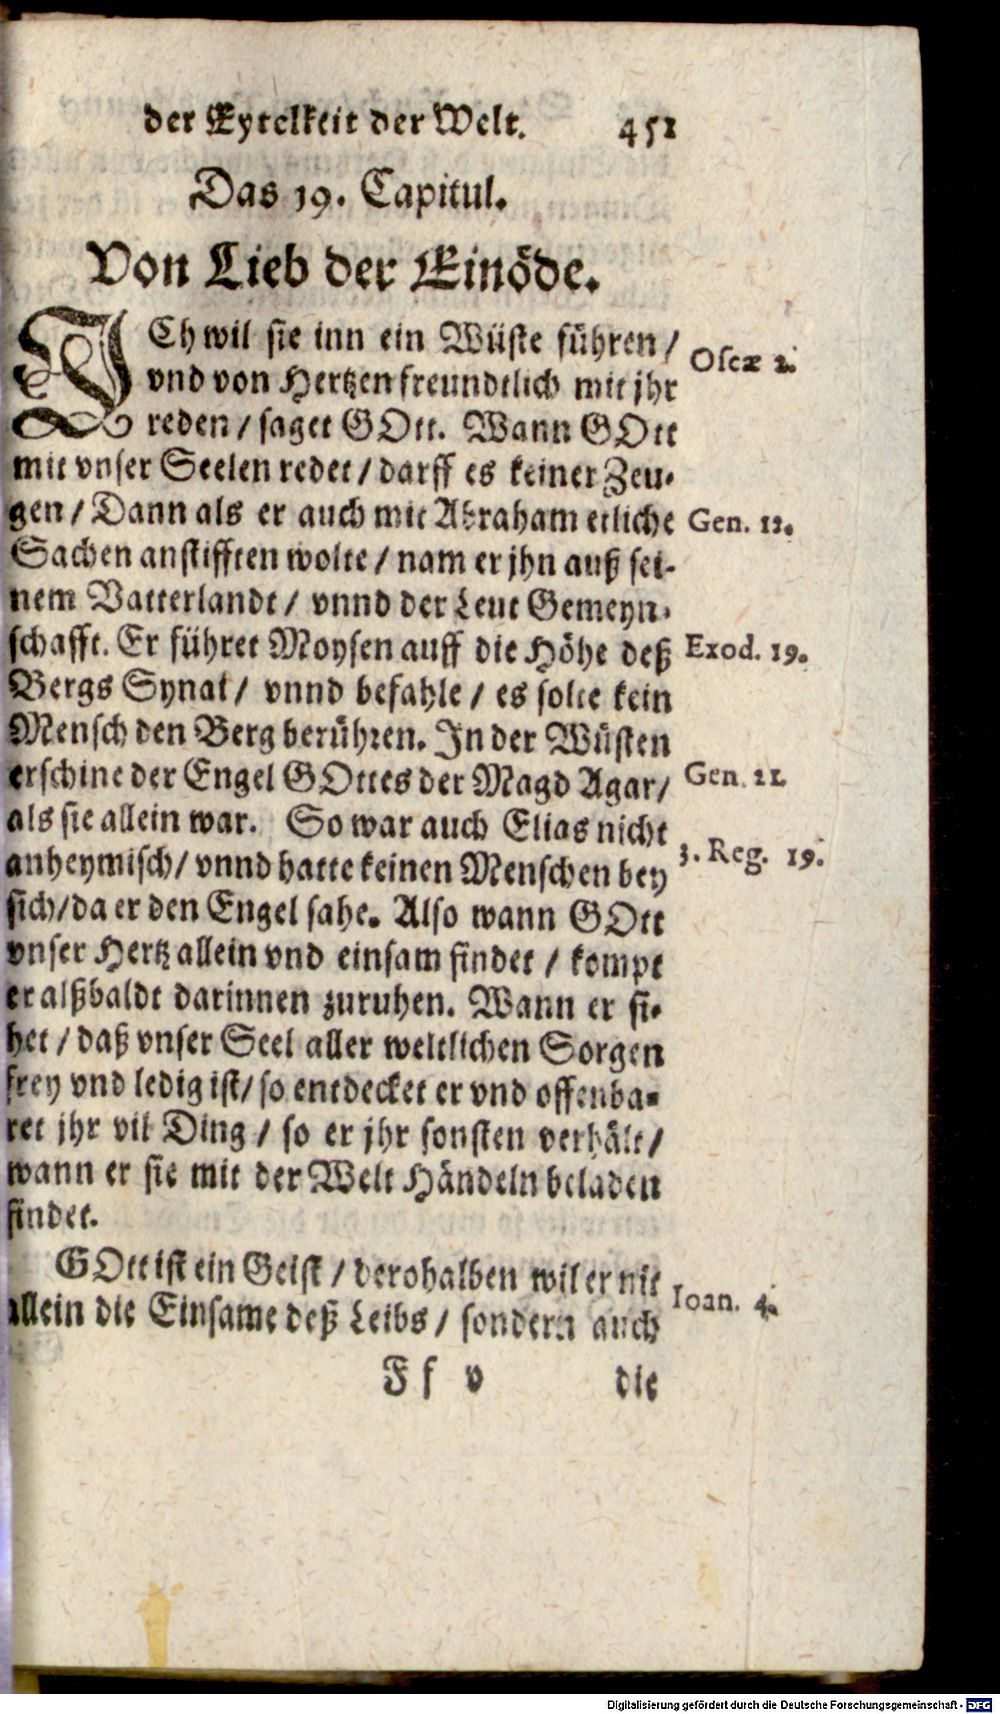 der Eytelkeit der Welt. 451
Das 19. Capitul.
Von Lieb der Einöde.
ICh wil sie inn ein Wüste führen / Oseæ 2.
vnd von Hertzen freundtlich mit jhr
reden / saget GOtt. Wann GOtt
mit vnser Seelen redet / darff es keiner Zeu-
gen / Dann als er auch mit Abraham etliche Gen. 12.
Sachen anstifften wolte / nam er jhn auß sei-
nem Vatterlandt / vnnd der Leut Gemeyn-
schafft. Er führet Moysen auff die Höhe deß Exod. 19.
Bergs Synai / vnnd befahle / es solte kein
Mensch den Berg berühren. In der Wüsten
erschine der Engel GOttes der Magd Agar / Gen. 21
als sie allein war. So war auch Elias nicht
anheymisch / vnnd hatte keinen Menschen bey 3. Reg. 19.
sich / da er den Engel sahe. Also wann GOtt
vnser Hertz allein vnd einsam findet / kompt
er alßbaldt darinnen zuruhen. Wann er si-
het / daß vnser Seel aller weltlichen Sorgen
frey vnd ledig ist / so entdecket er vnd offenba-
ret jhr vil Ding / so er jhr sonsten verhält /
wann er sie mit der Welt Händeln beladen
findet.
GOtt ist ein Geist / derohalben wil er nit
allein die Einsame deß Leibs / sondern auch Ioan. 4.
Ff v die
Digitalisierung gefördert durch die Deutsche Forschungsgemeinschaft - DFG